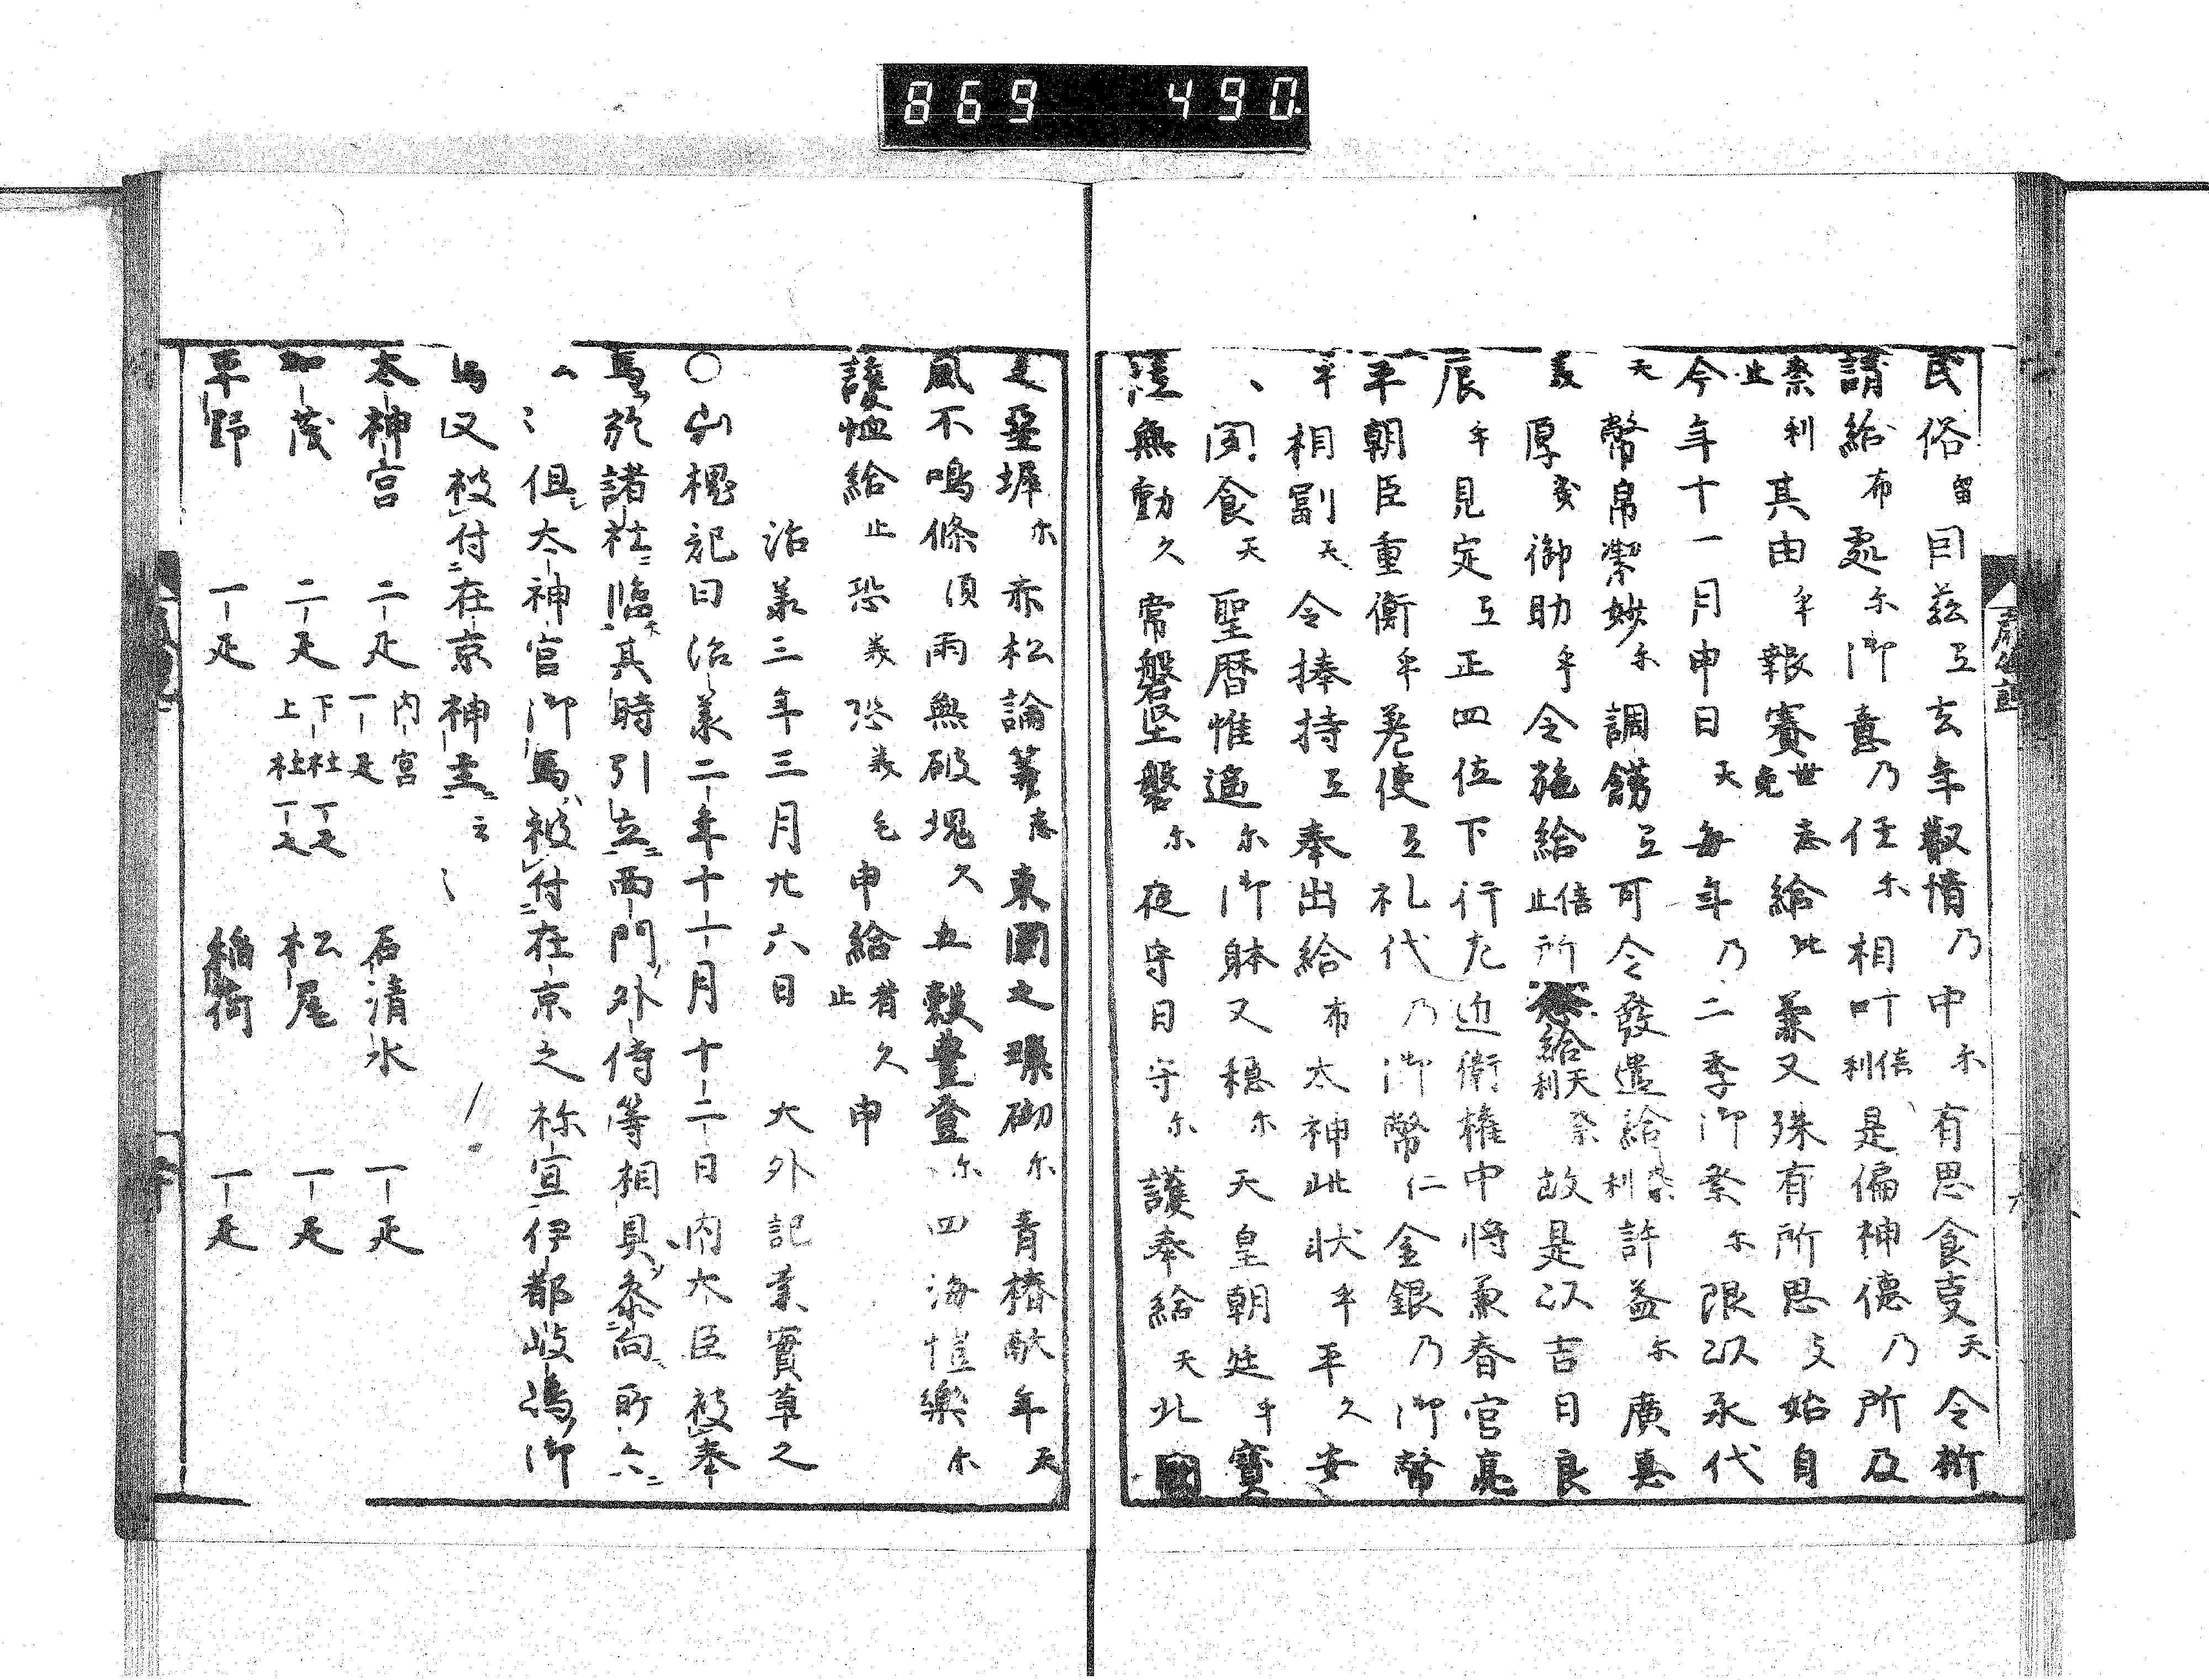 869 490
民俗留因茲互去年叡情乃中尓有思食変天令祈
請給布処尓御意乃任尓相叶倍利是偏神徳乃所及
止祭利其由乎報賽世免志給比兼又殊有所思天始自
今年十一月申日天毎年乃二季御祭尓限以永代
天幣帛潔妙尓調餝互可令発遣給利許益尓広恵
美厚幾御助乎令施給倍止所給天利故是以吉日良
辰乎見定互正四位下行左近衛権中将兼春宮亮
平朝臣重衡乎差使互礼代乃御幣仁金銀乃御幣
乎相副天令捧持互奉出給布太神此状乎平久安
、聞食天聖暦惟遥尓御躰又穏尓天皇朝廷乎宝
祚無動久常磐堅磐尓夜守日守尓護奉給天此国
之霊墀尓赤松論算志東園之璪砌尓青椿献年天
風不鳴條須雨無破塊久五穀豊登尓四海愷楽尓
護恤給止恐美恐美毛申給者久申止
治承三年三月廿六日 大外記業実草之
○山槐記曰治承二年十一月十二日内大臣被奉
馬於諸社臨其時引立西門外侍等相具参向所六
俱太神宮御馬被付在京之祢宜伊都岐嶋御
馬又被付在京神主云
太神宮 二疋 内宮一疋 石清水 一疋
加茂 二疋 下社一疋上社一疋 松尾 一疋
平野 一疋 稲荷 一疋